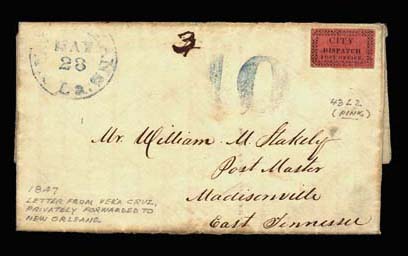 MAY
28
La.
3
10
CITY
DISPATCH
POST OFFICE
43L2
(PINK)
Mr. William M. Stakely
Post Master
Madisonville
East Tennessee
1847
LETTER FROM VERA CRUZ,
PRIVATELY FORWARDED TO
NEW ORLEANS